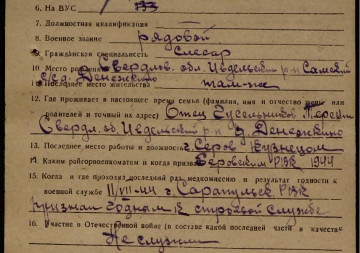 6. На ВУС 133
7. Должностная квалификация
8. Военное звание рядовой
9. Гражданская специальность Слесар
10. Место рождения Свердлов. обл Ивдельский р-н Самский
с/сд. Денежкино
11. Последнее место жительства там-же
12. Где проживает в настоящее время семья (фамилия, имя и отчество жены или
родителей и точный их адрес) Отец
Свердл. об Ивдельский р-н д Денежкино
13. Последнее место работы и должность г. Серов
14. Каким райгорвоенкоматом и когда призван Серовским РВК 1944
15. Когда и где проходил последний раз медкомиссию и результат годности к
военной службе 11/VII-44 г. Сарапульск РВК
признан годным к строевой службе
16. Участие в Отечественной войне (в составе какой последней части и в качестве
Не служил